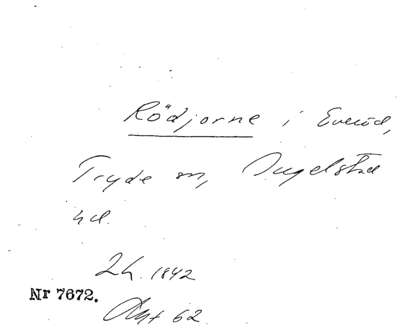 Rödjorne i Everöd,
Tryde sn, Ingelstad
hd.
Lh. 1842
Nr 7672.
Akt 62.